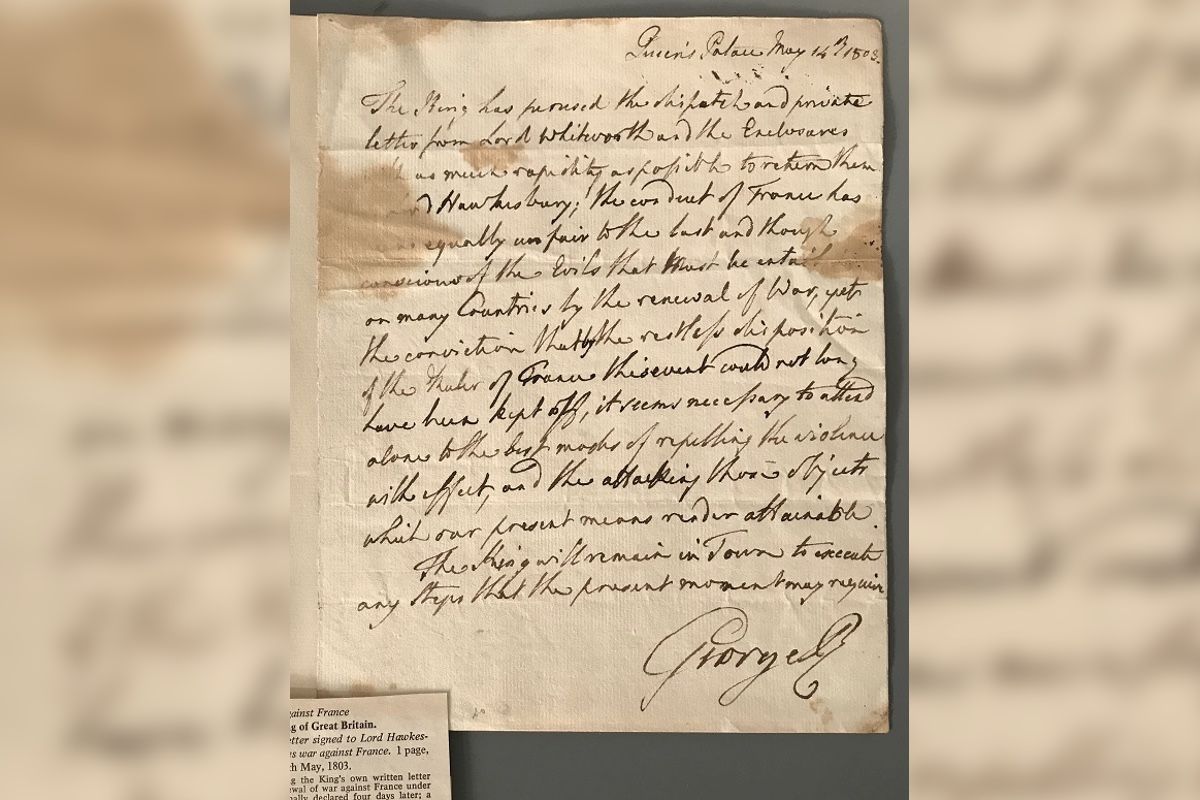 Queen's Palace May 14th 1803.
The King has perused the dispatch and private
letter from Lord Whitworth and the Enclosures
as much rapidity as possible to return them
Hawkesbury; the conduct of France has
equally unfair to the last and though
conscious of the Evils that must be entail'd
on many Countries by the renewal of War, yet
the conviction that by the restless disposition
of the Ruler of France this event could not long
have been kept off, it seems necessary to attend
alone to the best modes of repelling the violence
with effect, and the attacking those objects
which our present means render attainable.
The King will remain in Town to execute
any steps that the present moment may require.
George R
ainst France
g of Great Britain.
etter signed to Lord Hawkes-
s war against France. 1 page,
h May, 1803.
g the King's own written letter
wal of war against France under
ally declared four days later; a